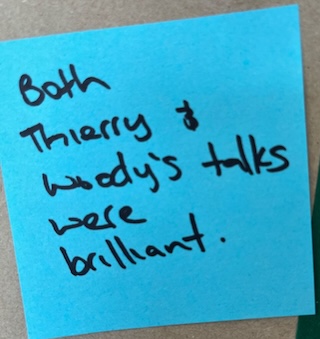 Both
Thierry &
Woody's talks
were
brilliant.